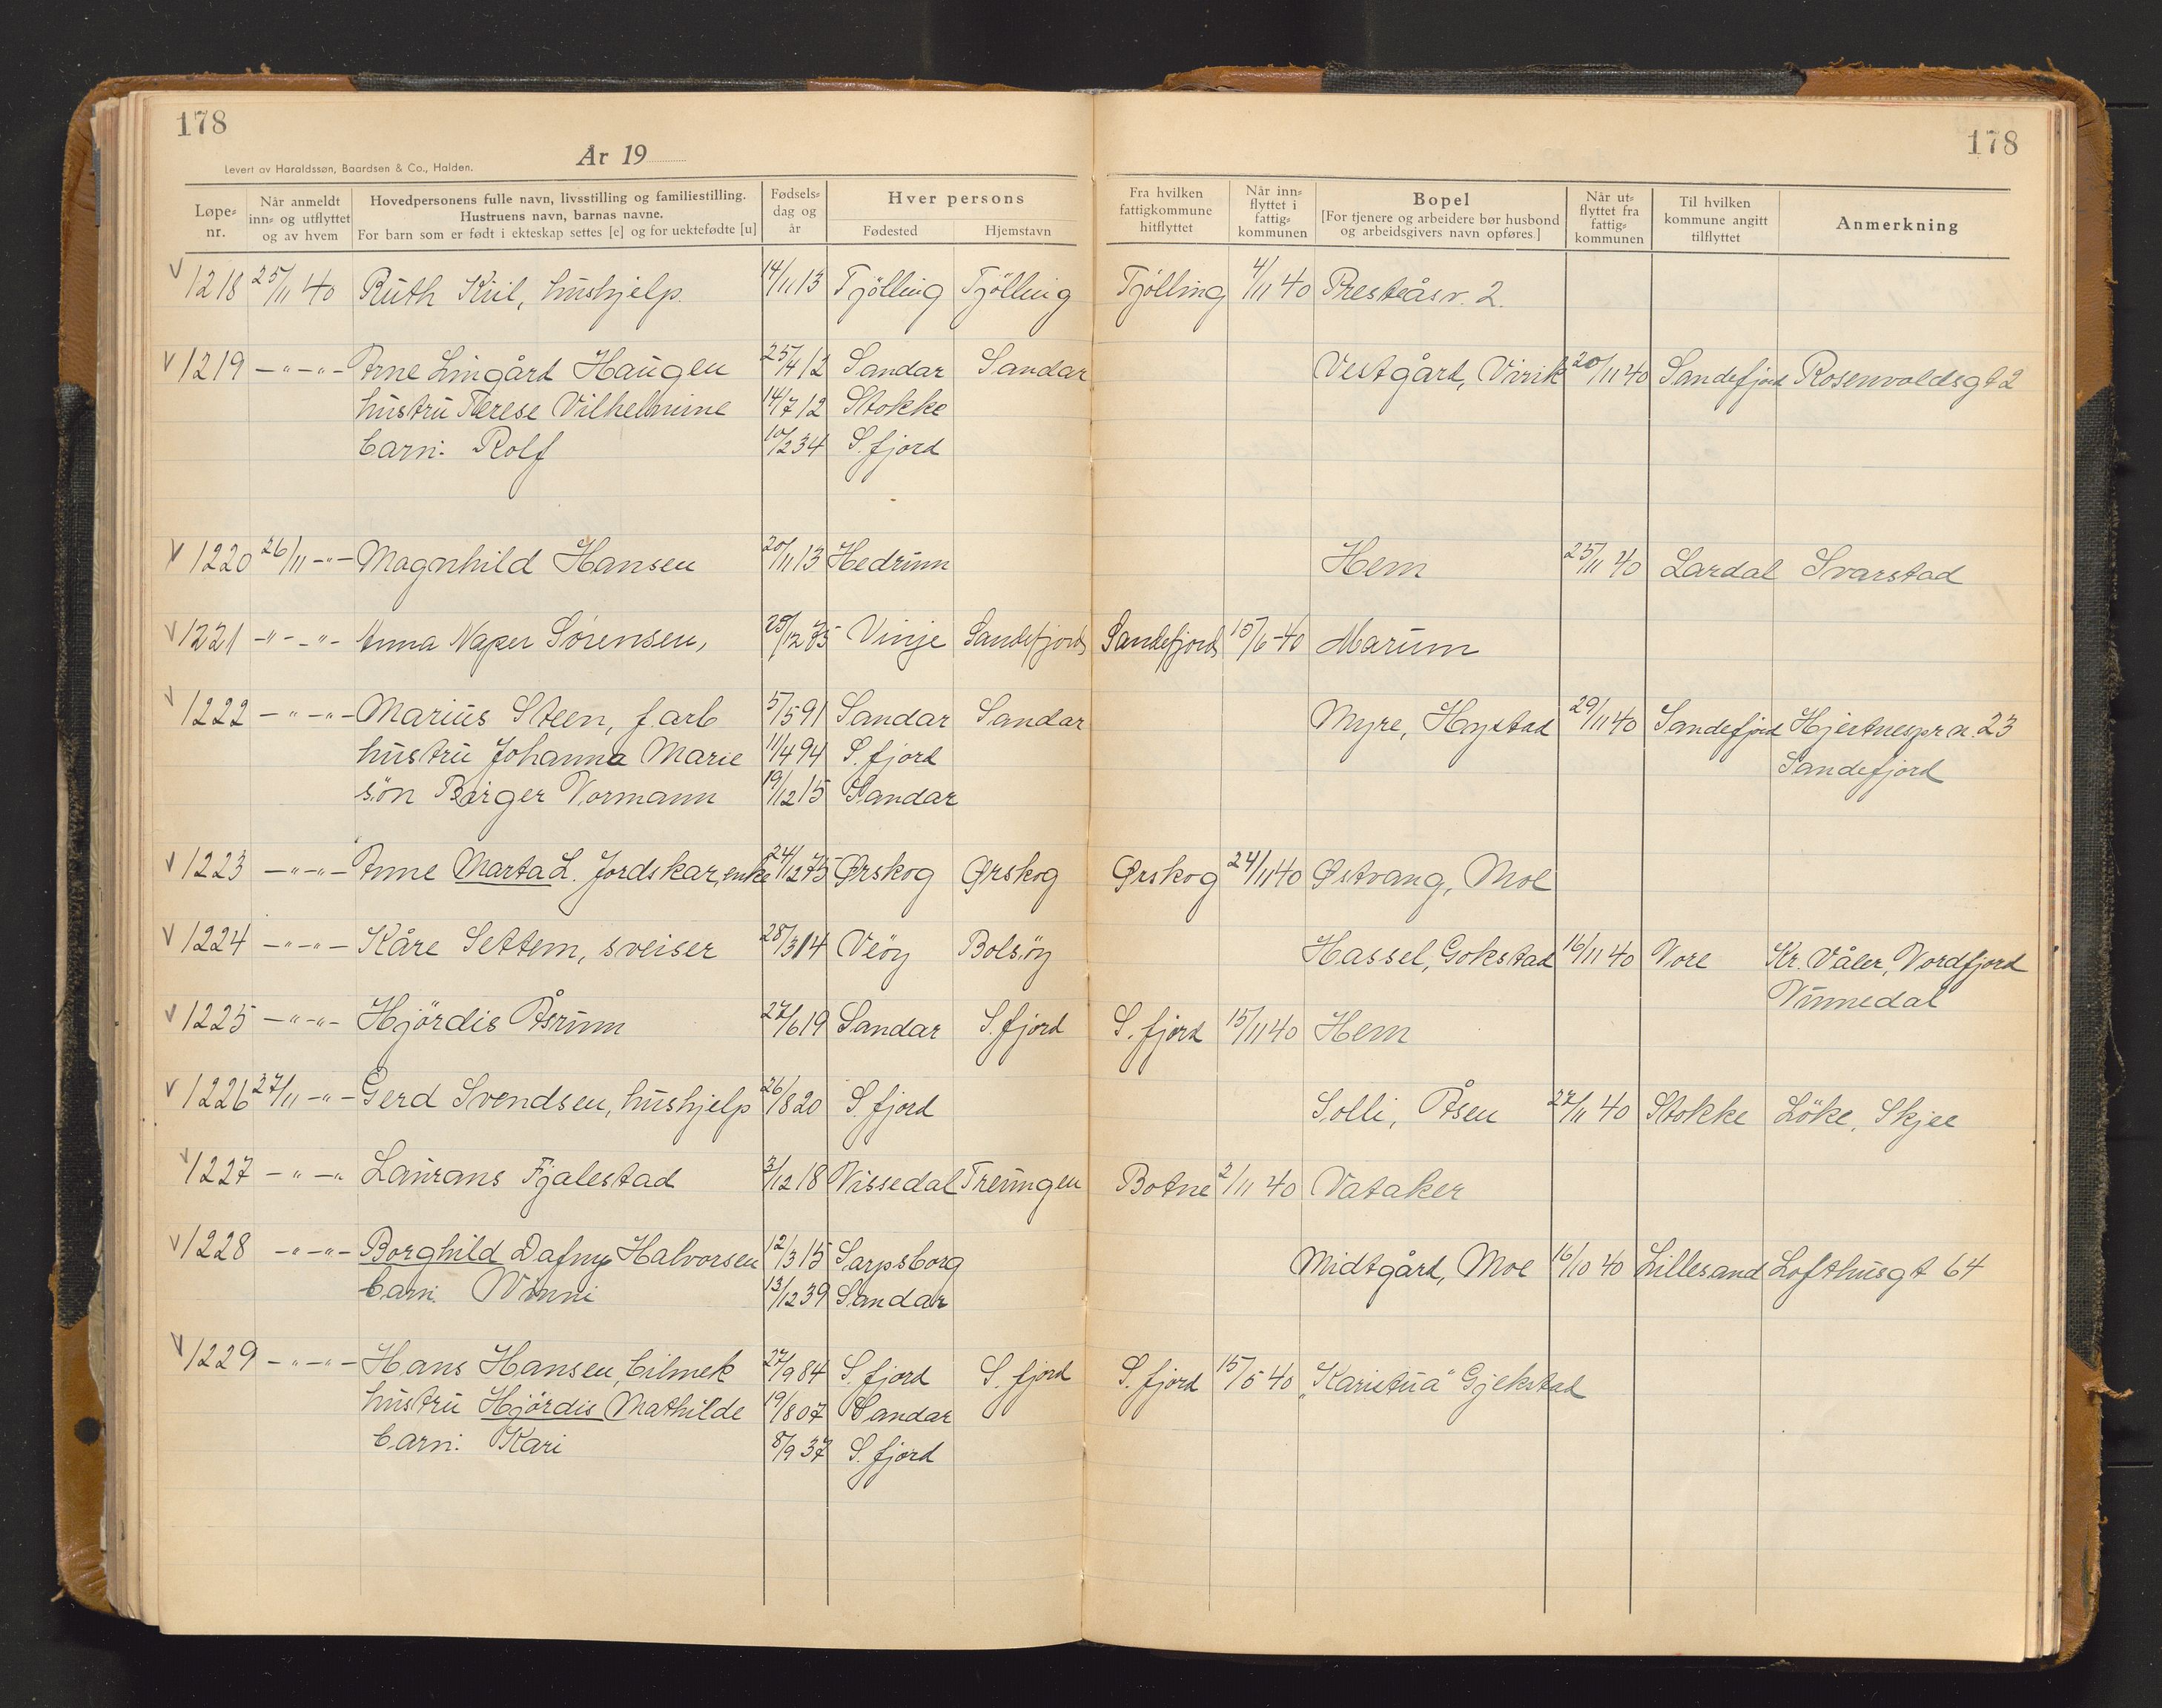 178
178
Levert av Haraldssøn, Baardsen & Co., Halden.
År 19
Løpe-nr.
Når anmeldt inn- og utflyttet og av hvem
Hovedpersonens fulle navn, livsstilling og familiestilling.
Hustruens navn, barnas navne.
For barn som er født i ekteskap settes [e] og for uektefødte [u]
Fødsels-dag og år
Hver persons
Fødested
Hjemstavn
Fra hvilken fattigkommune hitflyttet
Når inn-flyttet i fattig-kommunen
Bopel
[For tjenere og arbeidere bør husbond og arbeidsgivers navn opføres.]
Når ut-flyttet fra fattig-kommunen
Til hvilken kommune angitt tilflyttet
Anmerkning
V 1218 25/11 40 Ruth Kiil, hushjelp. 14/11 13 Tjölling Tjölling Tjölling 4/11 40 Presteåsv. 2.
V 1219 -"-"- Arne Lingård Haugen 25/4 12 Sandar Sandar Vestgård, Virik 20/11 40 Sandefjord Rosenvoldsgt 2
hustru Terese Vilhelmine 14/7 12 Stokke
barn: Rolf 10/2 34 S. fjord
V 1220 26/11 -"- Magnhild Hansen 20/11 13 Hedrum Hem 25/11 40 Lardal Svarstad
V 1221 -"-"- Anna Naper Sörensen, Vinje Sandefjord Sandefjord 15/6-40 Marum
V 1222 -"-"- Marius Steen, f.arb 5/5 91 Sandar Sandar Myre, Hystad 29/11 40 Sandefjord Hjertnespr n. 23
hustru Johanna Marie 11/4 94 S. fjord Sandefjord
sön Birger Normann 19/12 15 Sandar
V 1223 -"-"- Anne Marta L. Jordskar, enke 24/12 75 Ørskog Ørskog Ørskog 24/11 40 Østvang, Moe
V 1224 -"-"- Kåre Settem, sveiser 28/3 14 Veöy Bolsöy Hassel, Gokstad 16/11 40 Nore Kr. Våler, Nordfjord
Numedal
V 1225 -"-"- Hjördis Åsrum 27/6 19 Sandar S. fjord S. fjord 15/11 40 Hem
V 1226 27/11 -"- Gerd Svendsen, hushjelp 26/8 20 S. fjord Solli, Åsen 27/11 40 Stokke Löke, Skjee
V 1227 -"-" Laurans Fjalestad 3/12 18 Nissedal Treungen Botne 2/11 40 Vataker
V 1228 -"-"- Borghild Dafny Halvorsen 12/3 15 Sarpsborg Midtgård, Moe 16/10 40 Lillesand Lofthusgt 64
barn: Winni 13/12 39 Sandar
V 1229 -"-"- Hans Hansen, bilmek 27/9 84 S. fjord S. fjord S. fjord 15/5 40 "Karistua" Gjekstad
hustru Hjördis Mathilde 19/8 07 Sandar
barn: Kari 8/9 37 S. fjord